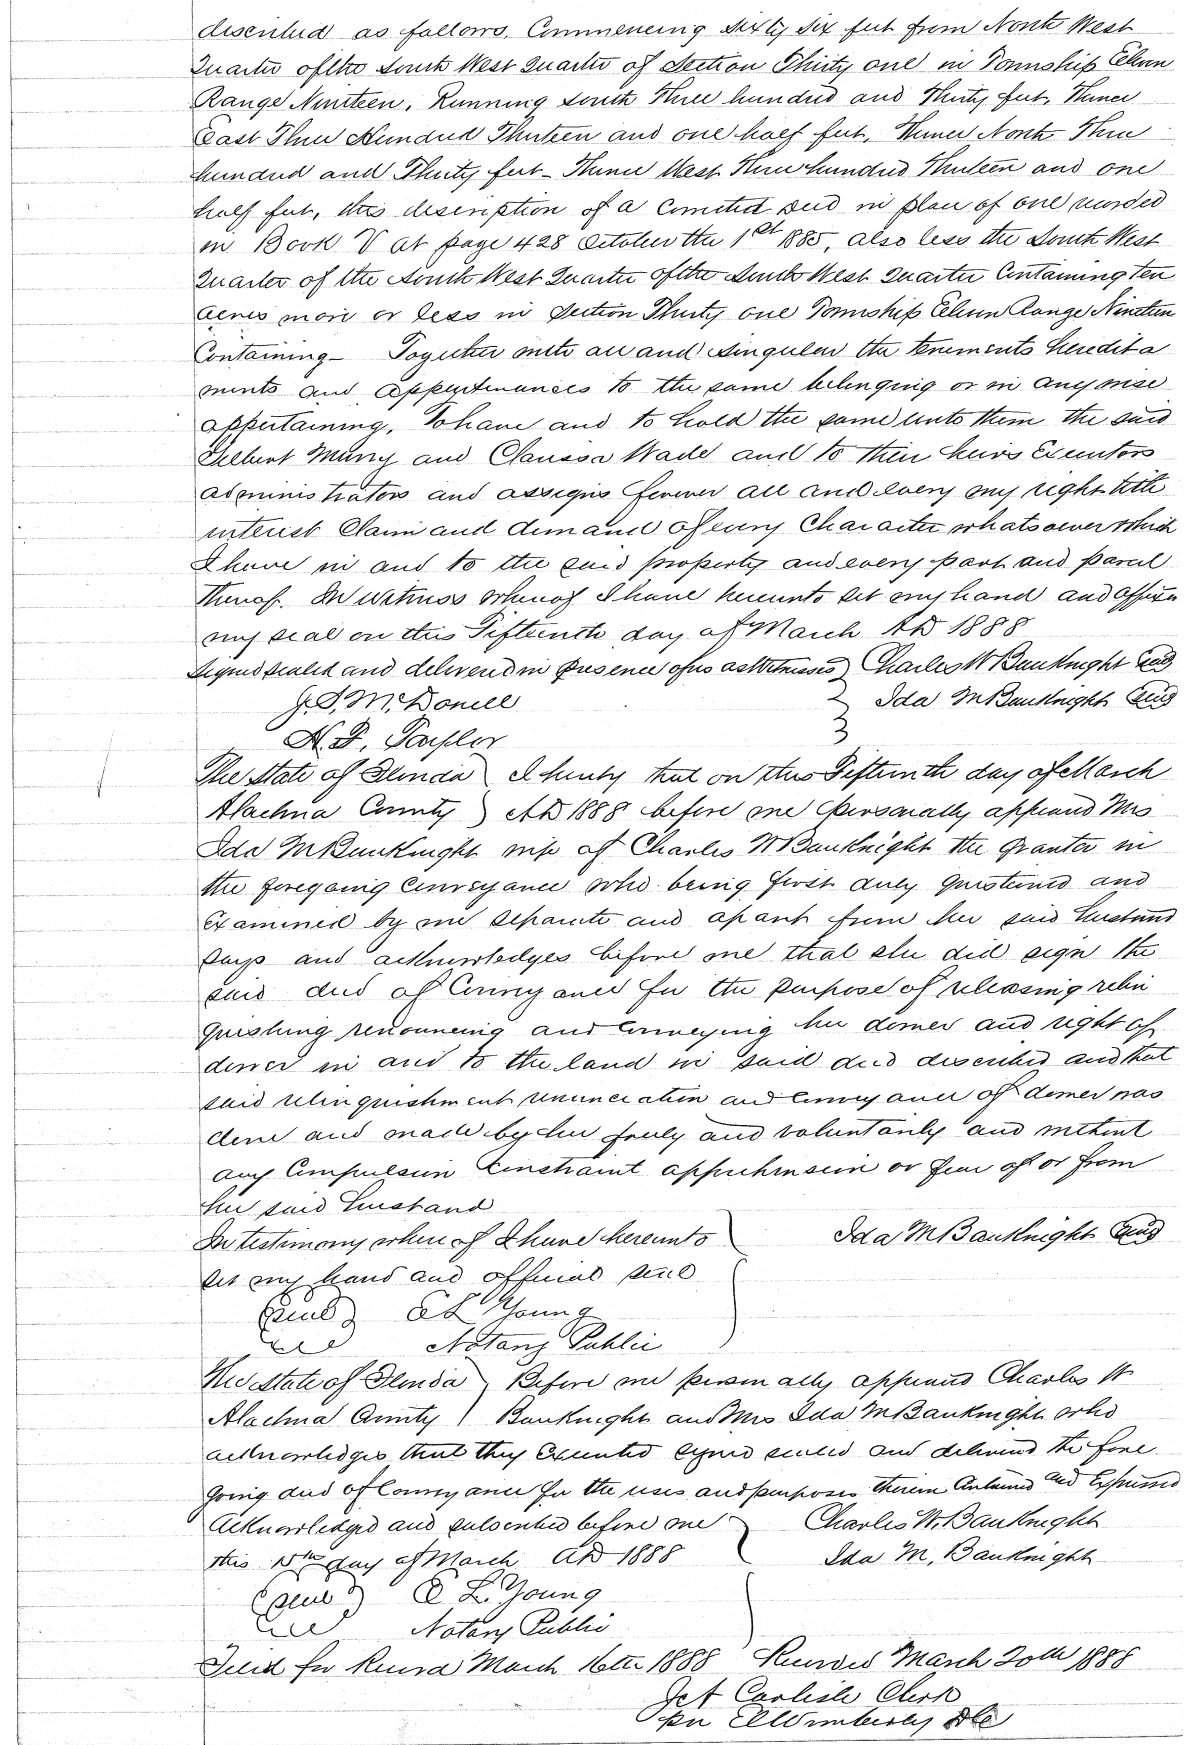 described as follows. Commencing Sixty Six feet from North West
Quarter of the South West Quarter of Section Thirty one in Township Eleven
Range Nineteen. Running South Three hundred and Thirty feet, Thence
East Three Hundred Thirteen and one half feet, Thence North Three
hundred and Thirty feet - Thence West Three hundred Thirteen and one
half feet, this description of a deed in place of one recorded
in Book V at page 428 October the 1st 1885, also less the South West
Quarter of the South West Quarter of the South West Quarter Containing ten
acres more or less in Section Thirty one Township Eleven Range Nineteen
Containing - Together with all and Singular the tenements heredita
ments and appurtenances to the same belonging or in anywise
appertaining, To have and to hold the same unto them the said
Murry and Clarissa Wade and to their heirs Executors
administrators and assigns forever all and every my right title
interest Claim and demand of every Character whatsoever which
I have in and to the said property and every part and parcel
thereof. In witness whereof I have hereunto set my hand and affixed
my seal on this Fifteenth day of March AD 1888
Signed sealed and delivered in presence of us as Witnesses) Charles W Bauknight Seal
J. S. McDonell Ida M Bauknight Seal
N. D. Taylor
The State of Florida ) I hereby that on this Fifteenth day of March
Alachua County ) AD 1888 before me personally appeared Mrs
Ida M Bauknight wife of Charles W Bauknight the Grantor in
the foregoing Conveyance who being first duly questioned and
examined by me separate and apart from her said husband
says and acknowledges before me that she did sign the
said deed of Conveyance for the purpose of releasing relin
quishing renouncing and Conveying her dower and right of
dower in and to the land in said deed described and that
said relinquishment renunciation and Conveyance of dower was
done and made by her freely and voluntarily and without
any Compulsion Constraint apprehension or fear of or from
her said husband
In testimony whereof I have hereunto ) Ida M Bauknight Seal
set my hand and official seal
(Seal) C L Young
Notary Public
The State of Florida ) Before me personally appeared Charles W
Alachua County ) Bauknight and Mrs Ida M Bauknight who
acknowledges that they Executed signed sealed and delivered the fore
going deed of Conveyance for the uses and purposes therein Contained and Expressed
Acknowledged and subscribed before me Charles W. Bauknight
this 15th day of March AD 1888 Ida M. Bauknight
(Seal) C L. Young
Notary Public
Filed for Record March 16th 1888 Recorded March 20th 1888
Carlisle Clerk
per Wimberly DC